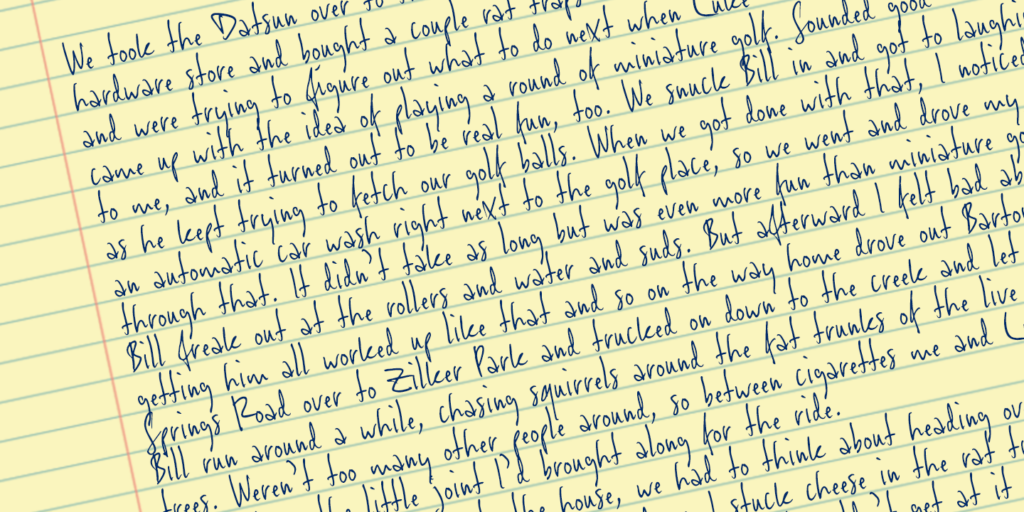 We took the Datsun over to
hardware store and bought a couple rat traps
and were trying to figure out what to do next when Luke
came up with the idea of playing a round of miniature golf. Sounded good
to me, and it turned out to be real fun, too. We snuck Bill in and got to laughing
as he kept trying to fetch our golf balls. When we got done with that, I noticed
an automatic car wash right next to the golf place, so we went and drove my
through that. It didn't take as long but was even more fun than miniature
Bill freak out at the rollers and water and suds. But afterward I felt bad
getting him all worked up like that and so on the way home drove out Barton
Springs Road over to Zilker Park and trucked on down to the creek and let
Bill run around a while, chasing squirrels around the fat trunks of the live
trees. Weren't too many other people around, so between cigarettes me and
little joint I'd brought along for the ride.
the house, we had to think about heading
stuck cheese in the rat
get at it